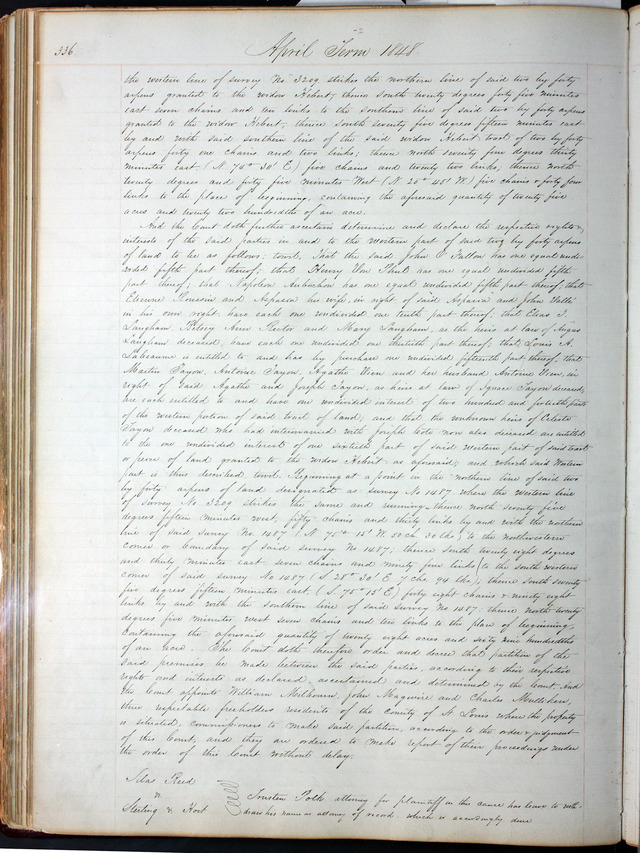 336
April Term 1848
the western line of survey No 3209 strikes the northern line of said two by forty
arpens granted to the widow Hebert; thence South twenty degrees forty five minutes
east seven chains and ten links to the southern line of said two by forty arpens
granted to the widow Hebert; thence South seventy five degrees fifteen minutes east
by and with said southern line of the said widow Hebert tract of two by forty
arpens forty one chains and two links; thence north seventy four degrees thirty
minutes east, (N. 74° 30' E) five chains and twenty two links; thence north
twenty degrees and forty five minutes West (N. 20° 45' W.) five chains & forty four
links to the place of beginning, containing the aforesaid quantity of twenty five
acres and twenty two hundredths of an acre.
And the Court doth further ascertain determine and declare the respective rights &
interests of the said parties in and to the western part of said two by forty arpens
of land to be as follows: towit. That the said John O Fallon has one equal undi-
vided fifth part thereof; that Henry Von Phul has one equal undivided fifth
part thereof; that Napoleon Aubuchon has one equal undivided fifth part thereof; that
Etienne Roussin and Aspasia his wife, in right of said Aspasia and John Vallé
in his own right, have each one undivided one tenth part thereof; that Elias T.
Langham, Betsey Ann Rector and Mary Langham, as the heirs at law of Angus
Langham deceased, have each one undivided one thirtieth part thereof; that Louis A.
Labeaume is entitled to and has by purchase one undivided fifteenth part thereof; that
Martin Tayon, Antoine Tayon, Agathe Uson and her husband Antoine Uson, in
right of said Agathe and Joseph Tayon, as heirs at law of Ignace Tayon deceased,
are each entitled to and have one undivided interest of two hundred and fortieth part
of the western portion of said tract of land; and that the unknown heirs of Celeste
Tayon deceased who had intermarried with Joseph Cote now also deceased are entitled
to the one undivided interest of one sixtieth part of said western part of said tract
or piece of land granted to the widow Hebert as aforesaid; and which said Western
part is thus described towit. Beginning at a point in the northern line of said two
by forty arpens of land designated as survey No 1487 where the western line
of survey No 3209 strikes the same and running thence north seventy five
degrees fifteen minutes west, fifty chains and thirty links by and with the northern
line of said survey No. 1487 (N 75° 15' W 50 ch. 30 lks) to the northwestern
corner or boundary of said survey No 1487; thence South twenty eight degrees
and thirty minutes east seven chains and ninety four links (to the south western
corner of said survey No 1487 (S 28° 30' E 7 chs. 94 lks), thence South seventy
five degrees fifteen minutes east (S. 75° 15' E) forty eight chains & ninety eight
links by and with the southern line of said survey No 1487; thence north twenty
degrees five minutes west seven chains and ten links to the place of beginning;
containing the aforesaid quantity of twenty eight acres and sixty nine hundredths
of an acre. The Court doth therefore order and decree that partition of the
said premises be made between the said parties, according to their respective
rights and interests as declared, ascertained and determined by the Court. And
the Court appoints William Milbourn, John Magwire and Charles Mullikin,
three respectable freeholders residents of the county of St Louis where the property
is situated, commissioners to make said partition, according to the order & judgment
of this Court, and they are ordered to make report of their proceedings under
the order of this Court without delay.
Silas Reed
v.
Sterling & Hort
Trusten Polk attorney for plaintiff in this cause has leave to with-
draw his name as attorney of record which is accordingly done